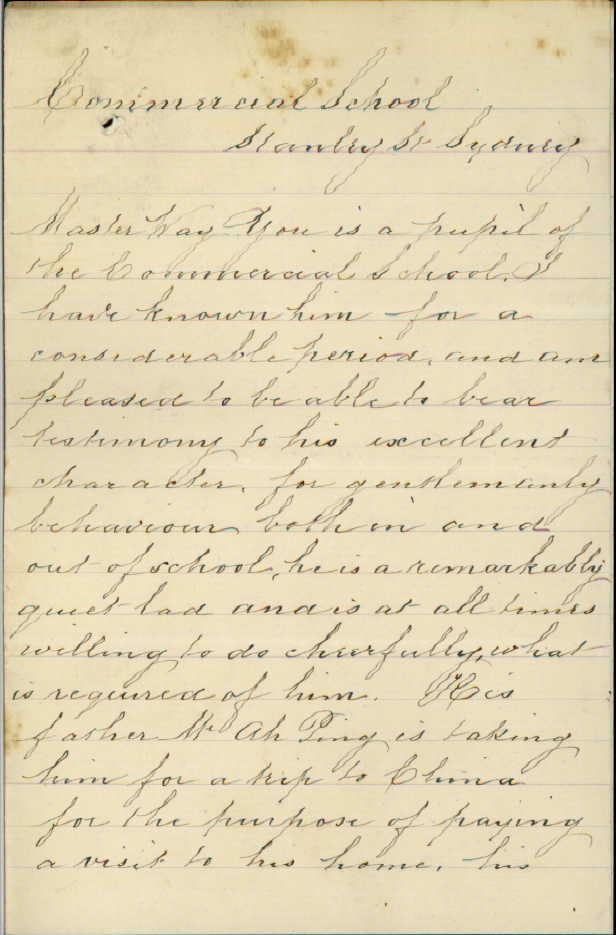 Commercial School
Stanley St Sydney
Master Way You is a pupil of
the Commercial School. I
have known him for a
considerable period, and am
pleased to be able to bear
testimony to his excellent
character, for gentlemanly
behaviour both in and
out of school, he is a remarkably
quiet lad and is at all times
willing to do cheerfully, what
is required of him. His
father Mr Ah Ping is taking
him for a trip to China
for the purpose of paying
a visit to his home, his